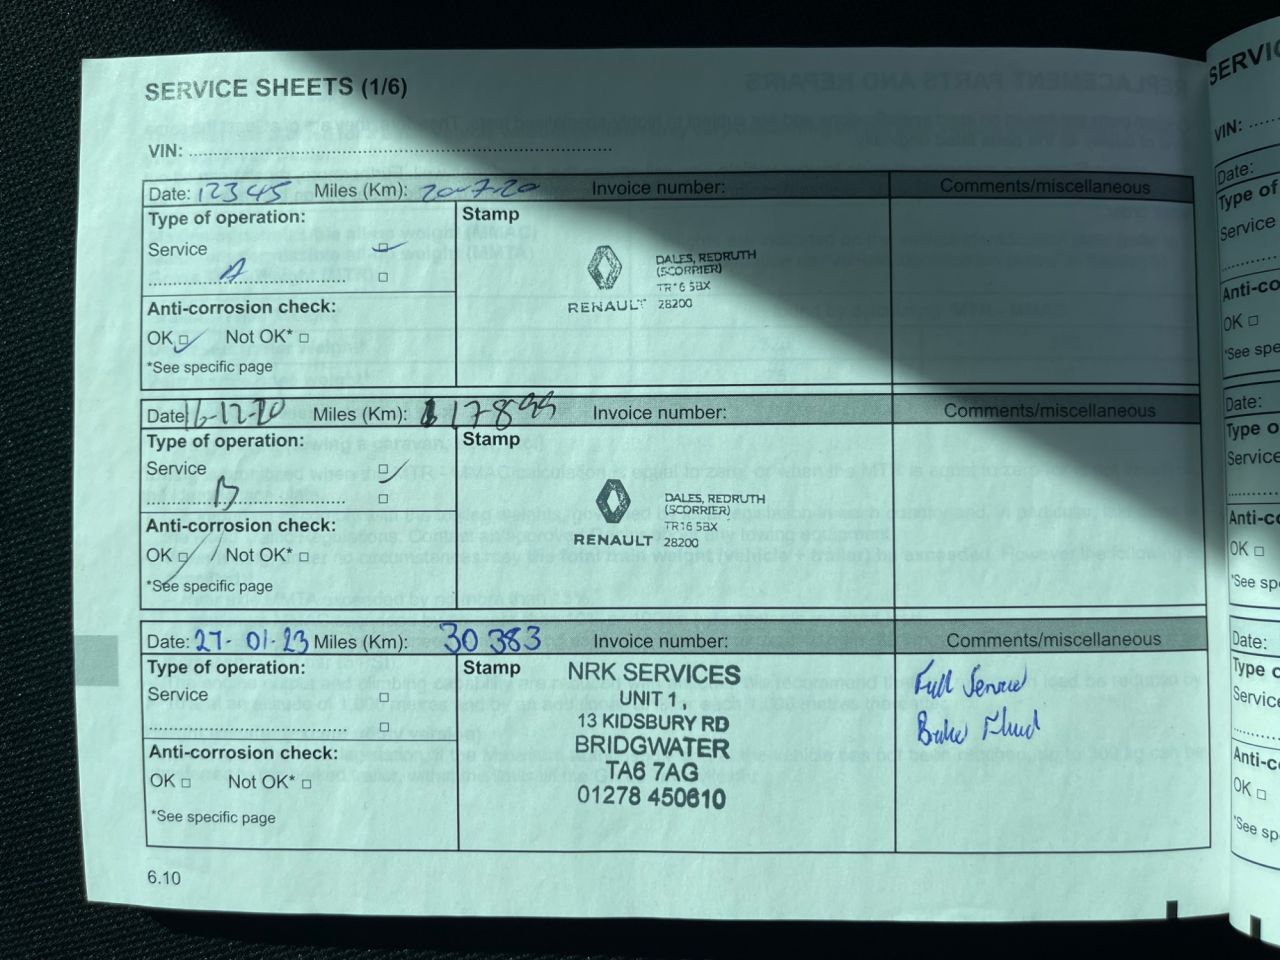 SERVICE SHEETS (1/6)
VIN:
Date: 12345 Miles (Km): 20-7-20 Invoice number: Comments/miscellaneous
Type of operation: Stamp
Service
A
Anti-corrosion check:
OK Not OK*
*See specific page
RENAULT
DALES, REDRUTH
(SCORRIER)
TR16 5BX
28200
Date: 16-12-20 Miles (Km): 17899 Invoice number: Comments/miscellaneous
Type of operation: Stamp
Service
B
Anti-corrosion check:
OK Not OK*
*See specific page
RENAULT
DALES, REDRUTH
(SCORRIER)
TR16 5BX
28200
Date: 27-01-23 Miles (Km): 30383 Invoice number: Comments/miscellaneous
Type of operation: Stamp
Service
Anti-corrosion check:
OK Not OK*
*See specific page
NRK SERVICES
UNIT 1,
13 KIDSBURY RD
BRIDGWATER
TA6 7AG
01278 450610
Full Service
Brake Fluid
6.10
SERVIC
VIN:
Date:
Type of
Service
Anti-co
OK
*See spe
Date:
Type o
Service
Anti-c
OK
*See sp
Date:
Type o
Servic
Anti-c
OK
*See sp